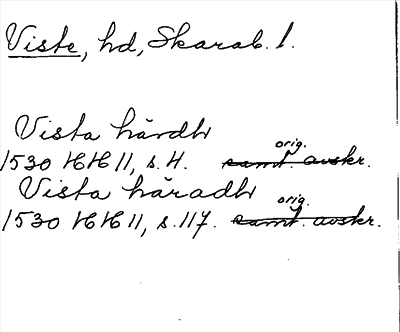 Viste, hd, Skarab. l.
Vista härdh
orig.
1530 HH 11, s. 4. samt. avskr.
Vista häradh
orig.
1530 HH 11, s. 117. samt. avskr.